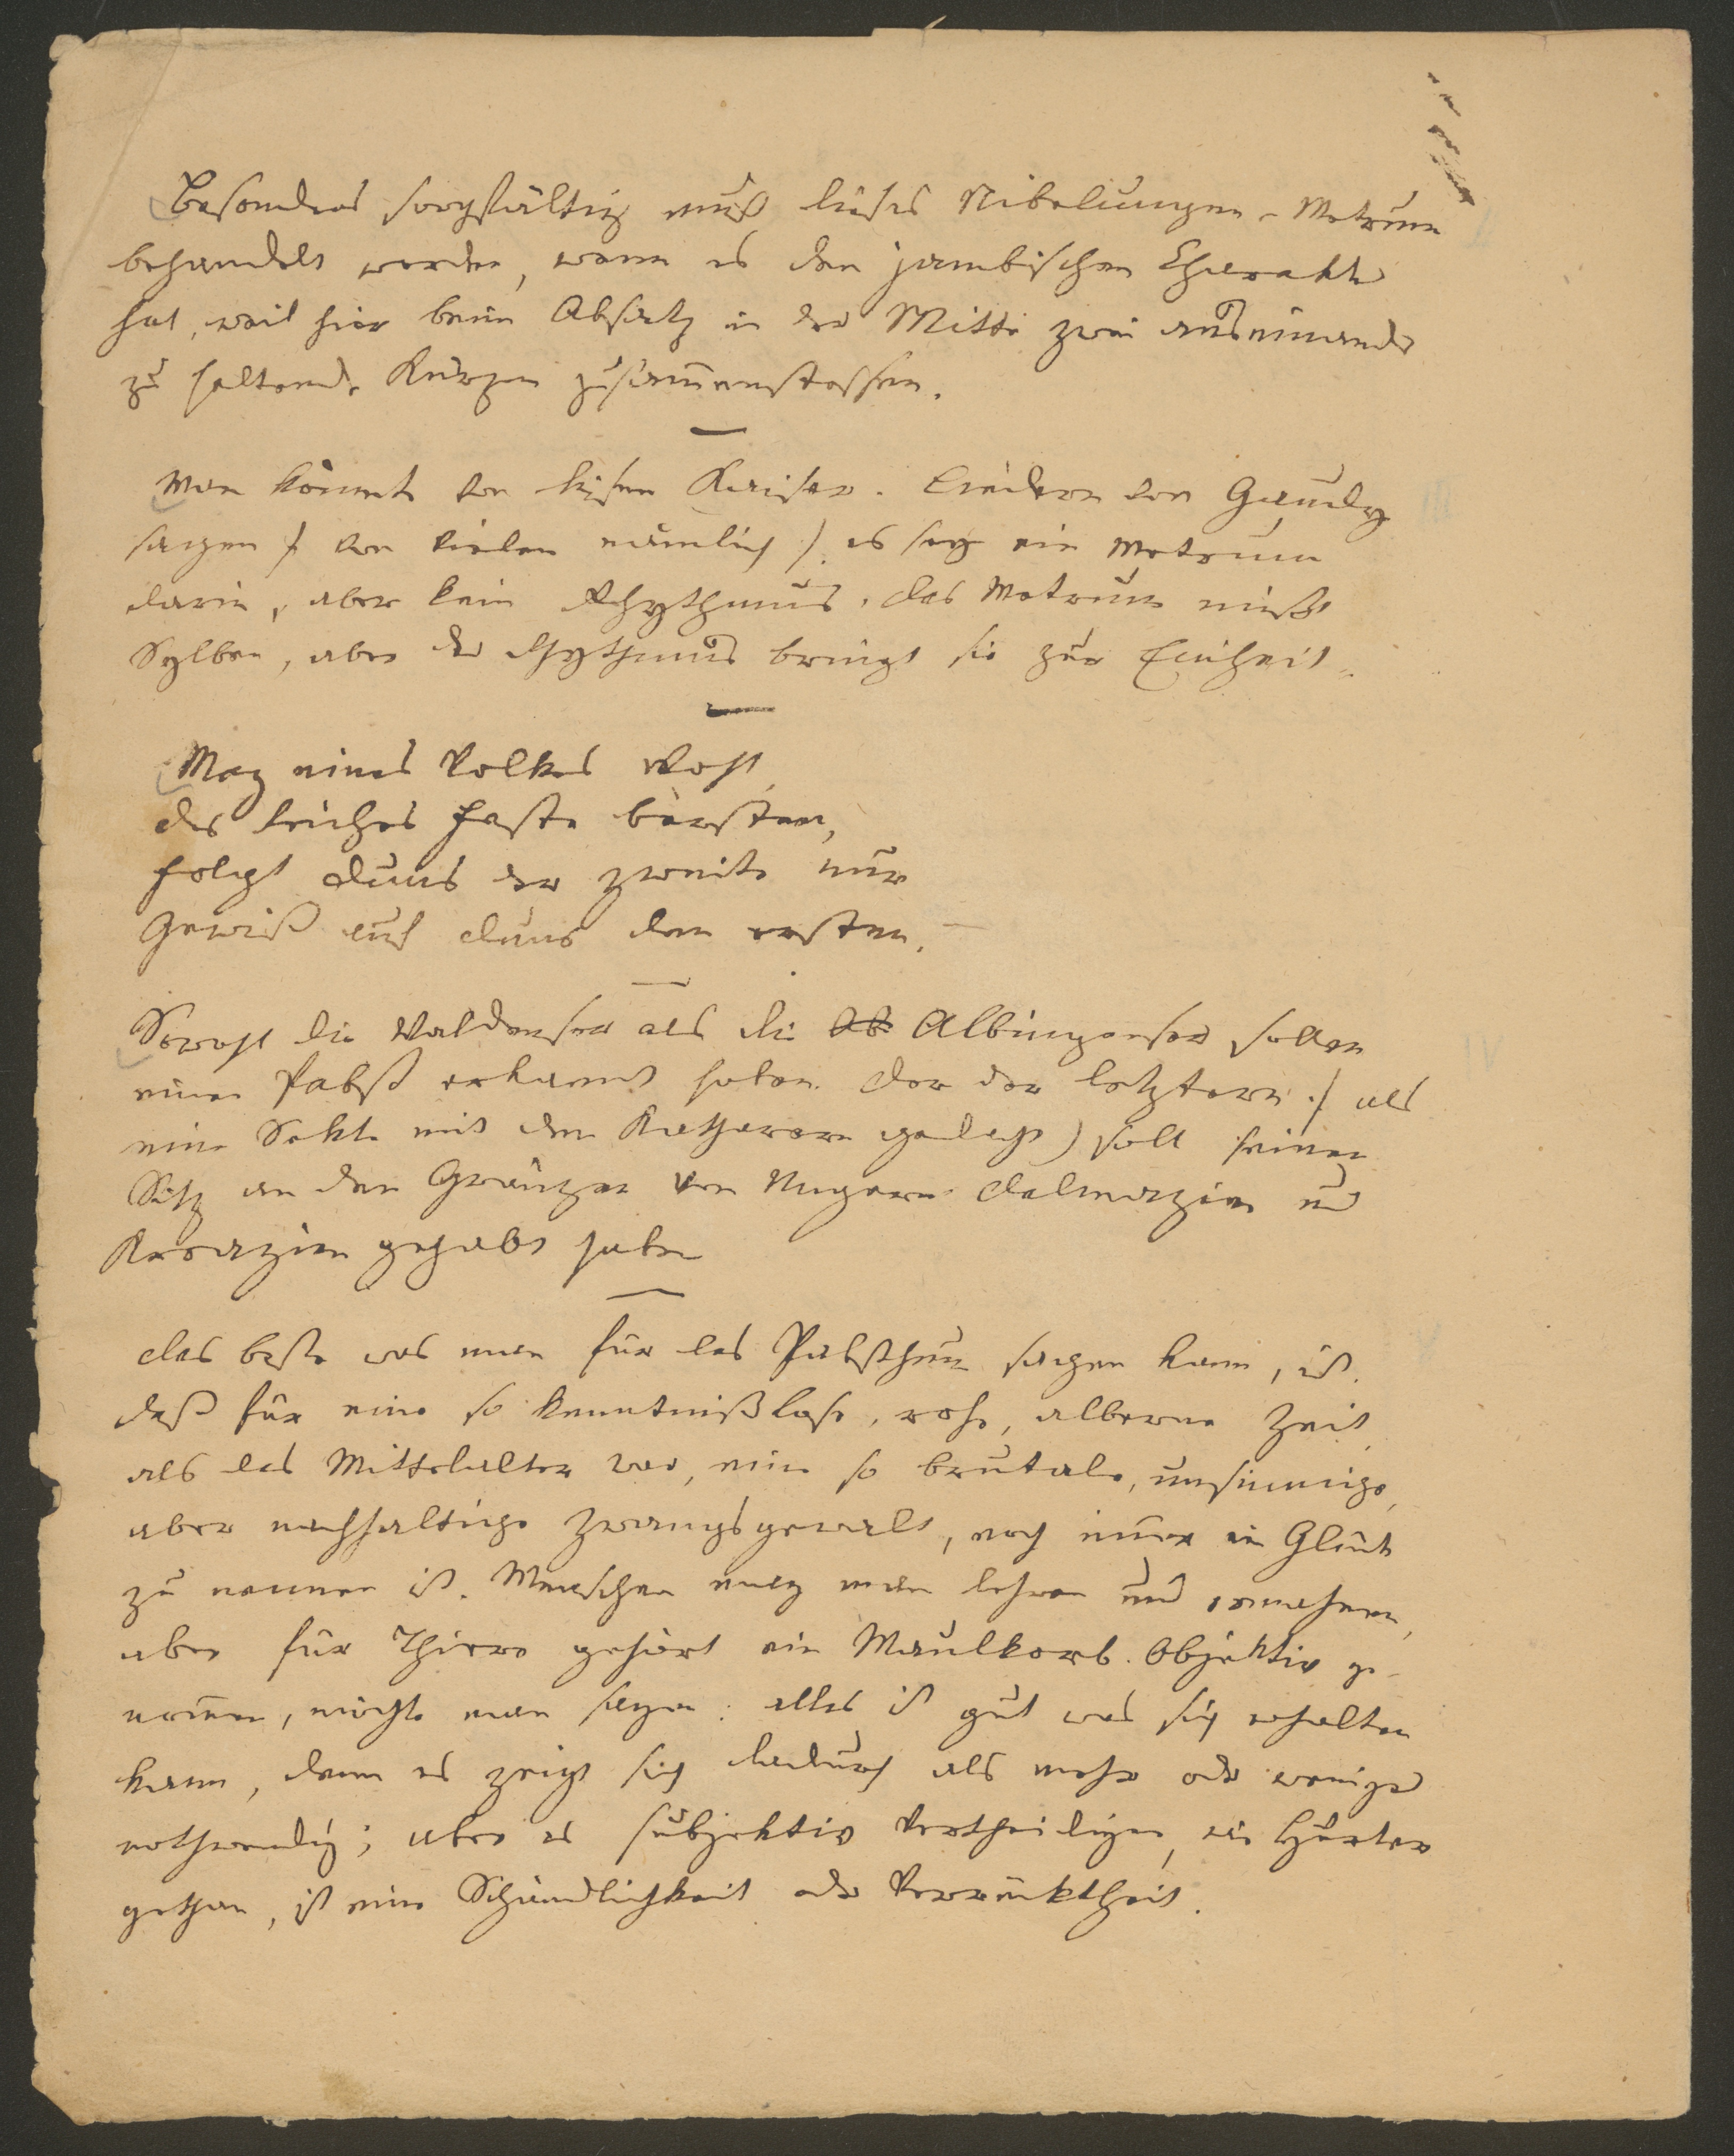 Besonders sorgfältig muß dieses Nibelungen-Metrum
behandelt werden, wenn es den jambischen Charakter
hat, weil hier beim Absatz in der Mitte zwei auseinander
zu haltende Kürzen zusam̅enstossen.
Man könnte von diesen Kaiser-Liedern von Gaudy
sagen (von vielen nämlich): es sey ein Metrum
darin, aber kein Rhythmus. das Metrum mißt
Sylben, aber der Rhythmus bringt sie zur Einheit.
Mag eines Volkes
des Reiches Feste bersten,
folgt der zweite nur
Gewiß auf den ersten.
Sowohl die Waldenser als die Albingenser sollen
einen Pabst erkannt haben. Der der letztern (als
eine Sekte mit den Katharern gedacht) soll seinen
Sitz an den Gränzen von Ungarn Dalmazien und
Kroazien gehabt haben
das beste was man für das Pabsthum sagen kann, ist.
daß für eine so kenntnißlose, rohe, alberne Zeit,
als das Mittelalter war, eine so brutale, unsinnige,
aber nachhaltige Zwangsgewalt, noch im̅er ein Glück
zu nennen ist. Menschen mag man lehren und ermahnen,
aber für Thiere gehört ein Maulkorb. Objektiv ge-
nom̅en, möchte man sagen: alles ist gut was sich erhalten
kann, denn es zeigt sich dadurch als mehr oder weniger
nothwendig; aber es subjektiv vertheidigen, wie Hurter
gethan, ist eine Schändlichkeit oder Verrücktheit.